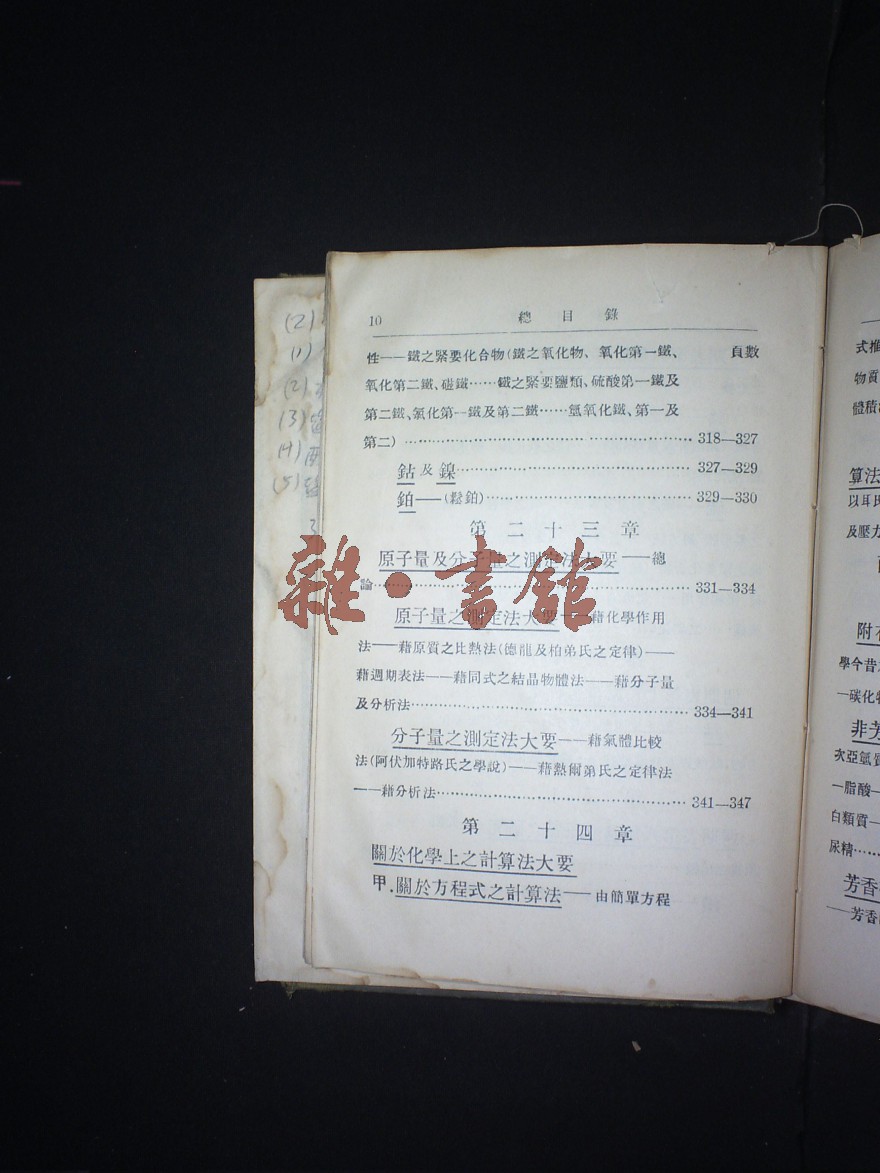 10 總目錄
性——鐵之緊要化合物(鐵之氧化物、氧化第一鐵、 頁數
氧化第二鐵、磁鐵……鐵之緊要鹽類、硫酸第一鐵及
第二鐵、氯化第一鐵及第二鐵……氫氧化鐵、第一及
第二)……318—327
鈷及鎳……327—329
鉑——(鬆鉑)……329—330
第二十三章
原子量及分子量之測定法大要——總
論……331—334
原子量之測定法大要——藉化學作用
法——藉原質之比熱法(德龍及柏弟氏之定律)——
藉週期表法——藉同式之結晶物體法——藉分子量
及分析法……334—341
分子量之測定法大要——藉氣體比較
法(阿伏加特路氏之學說)——藉熱爾弟氏之定律法
——藉分析法……341—347
第二十四章
關於化學上之計算法大要
甲.關於方程式之計算法——由簡單方程
雜·書館
(2)
(1)
(2)
(3)
(4)
(5)
式推
物質
體積
算法
以耳氏
及壓力
附
學今昔
—碳化物
非芳
次亞氫質
—脂酸—
白類質—
尿精……
芳香
——芳香